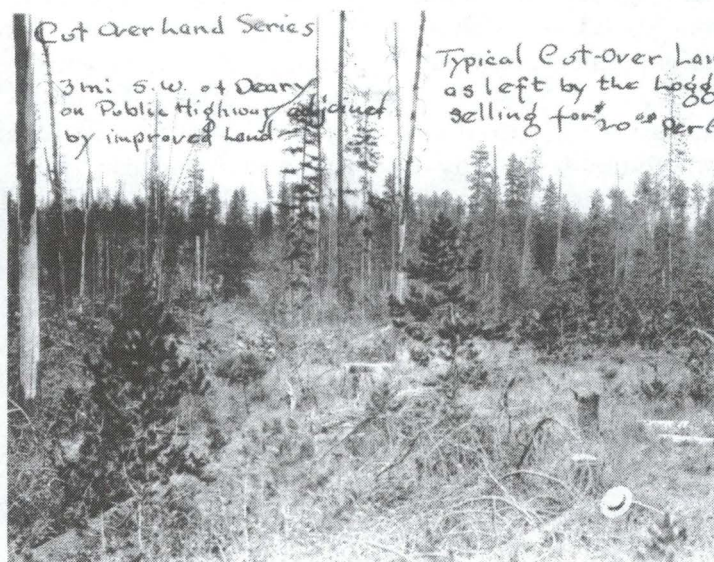 Cut Over Land Series
3 mi S.W. of Deary
on Public Highway adjoined
by improved Land
Typical Cut-Over Lan
as left by the Logg
selling for $20.00 Per